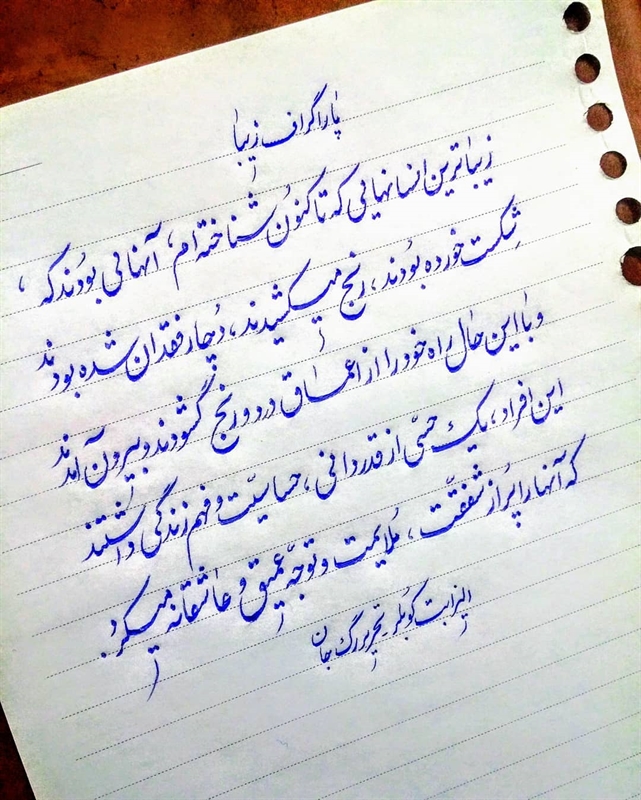 پاراگراف زیبا
زیباترین انسانهایی که تاکنون شناخته ام، آنهائی بودند که ،
شِکست خورده بودند، رنج میکشیدند، دُچار فقدان شده بودند
و با این حال راه خود را از اعماق درد و رنج گشودند و بیرون آمدند
این افراد، یک حسّی از قدردانی، حساسیّت و فهم زندگی داشتند
که آنها را پُر از شفقّت، مُلایمت و توجّه عمیق و عاشقانه میکرد.
الیزابت کوبلر _ تحریر رگ جان